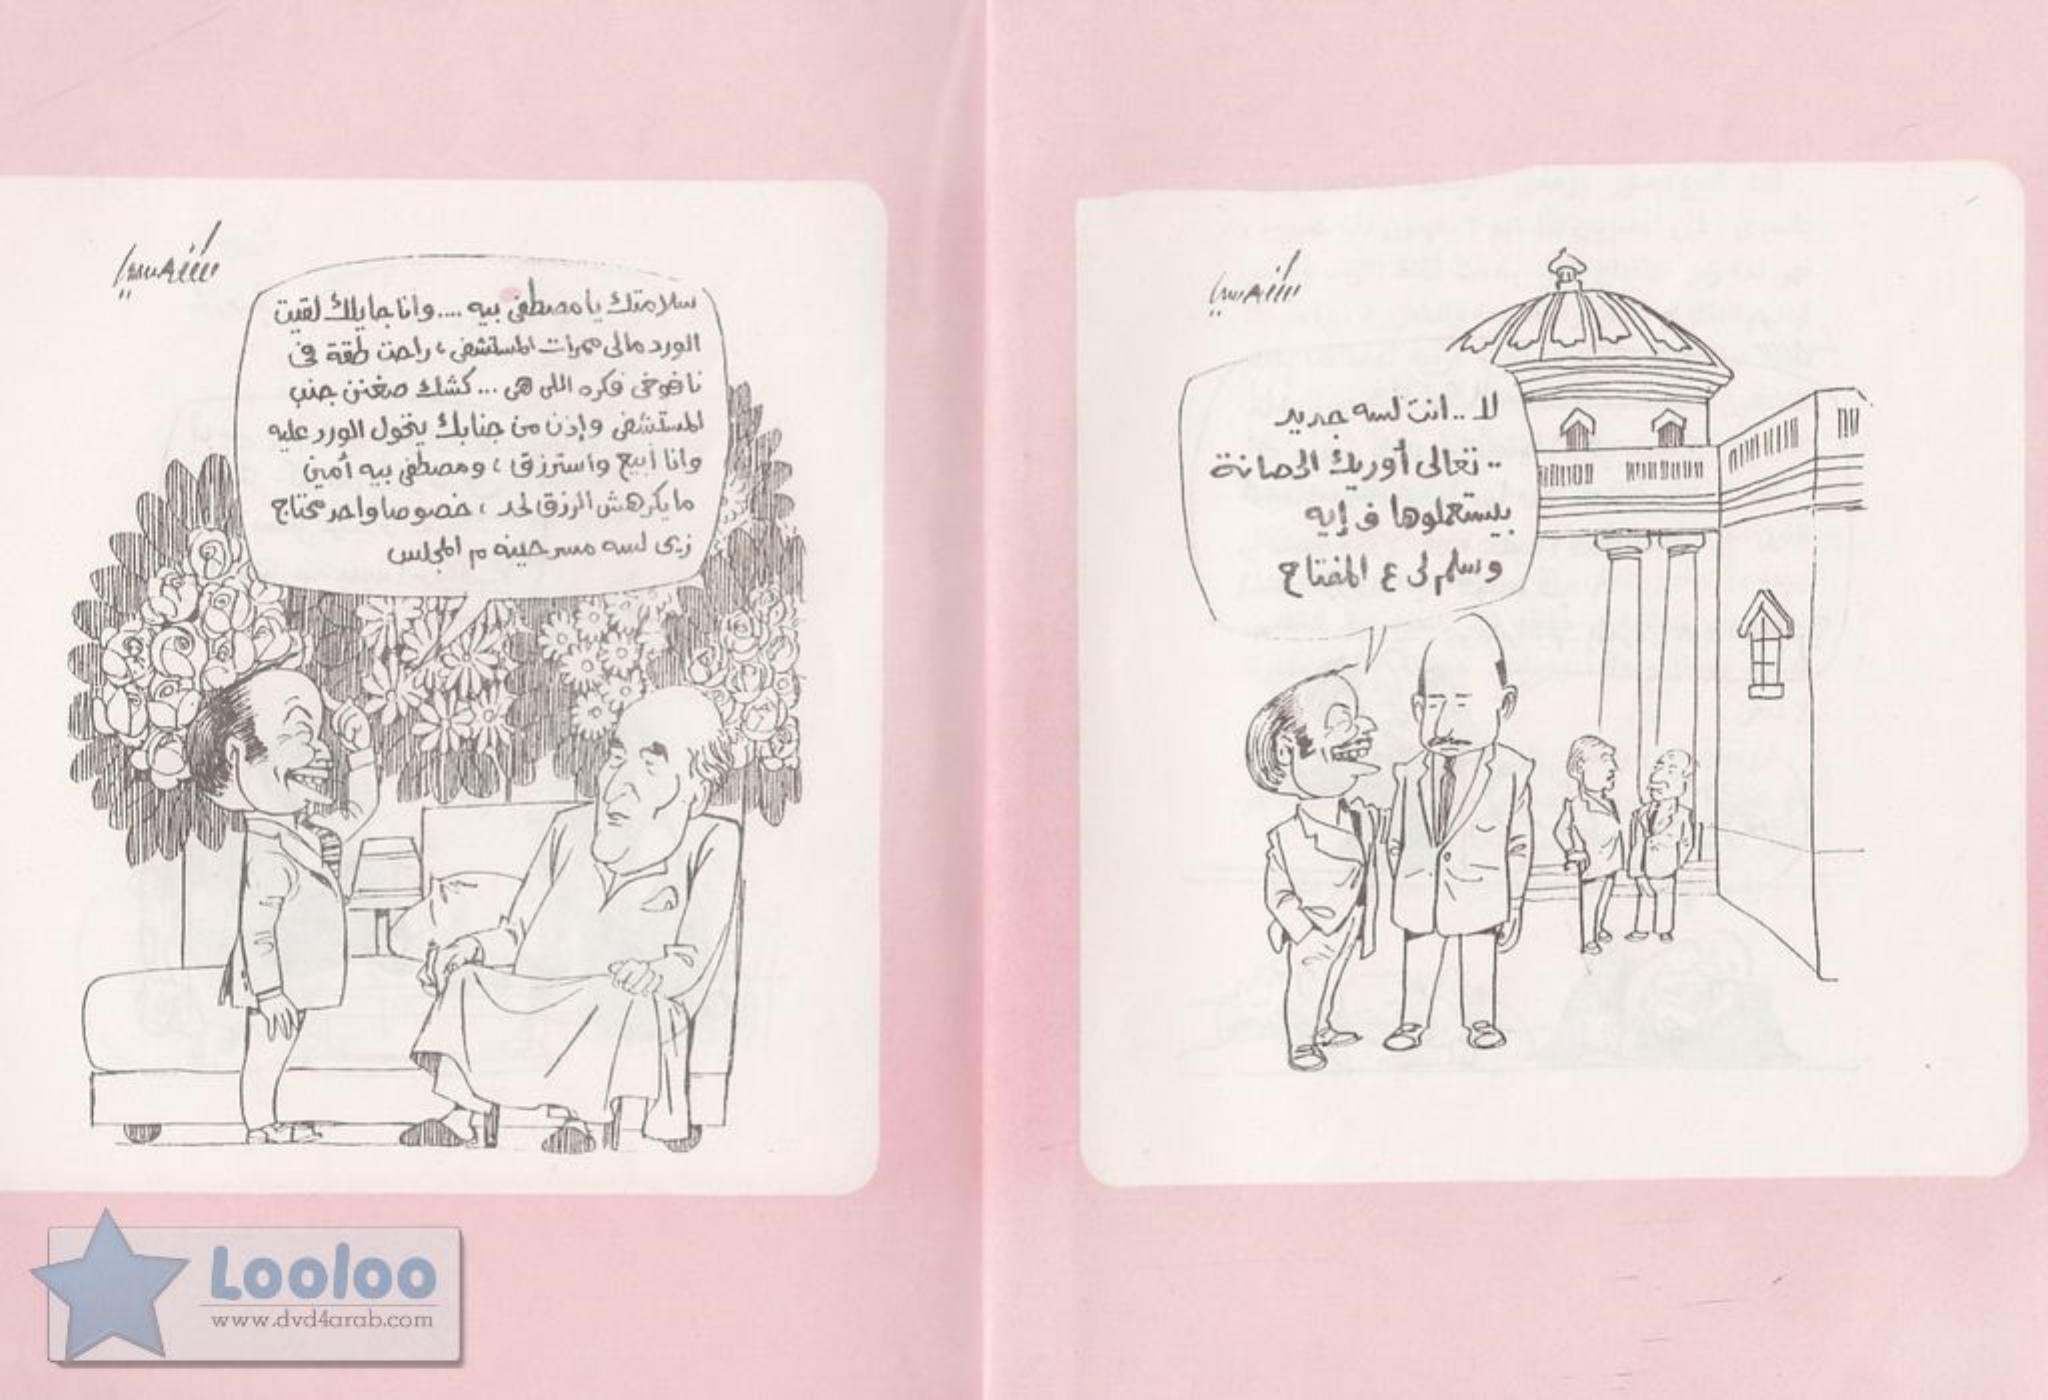 لا .. انت لسه جديد
.. تعالى أوريك الحصانة
بيستعملوها ف إيه
وسلم لى ع المفتاح
سلامتك يا مصطفى بيه .... وانا جايلك لقيت
الورد مالى ممرات المستشفى ، راحت طقة فى
نافوخى فكره اللى هى ... كشك صغنن جنب
المستشفى وإذن من جنابك يتحول الورد عليه
وانا أبيع واسترزق ، ومصطفى بيه أمين
مايكرهش الرزق لحد ، خصوصا واحد محتاج
زيى لسه مسرحينه م المجلس
Looloo
www.dvd4arab.com